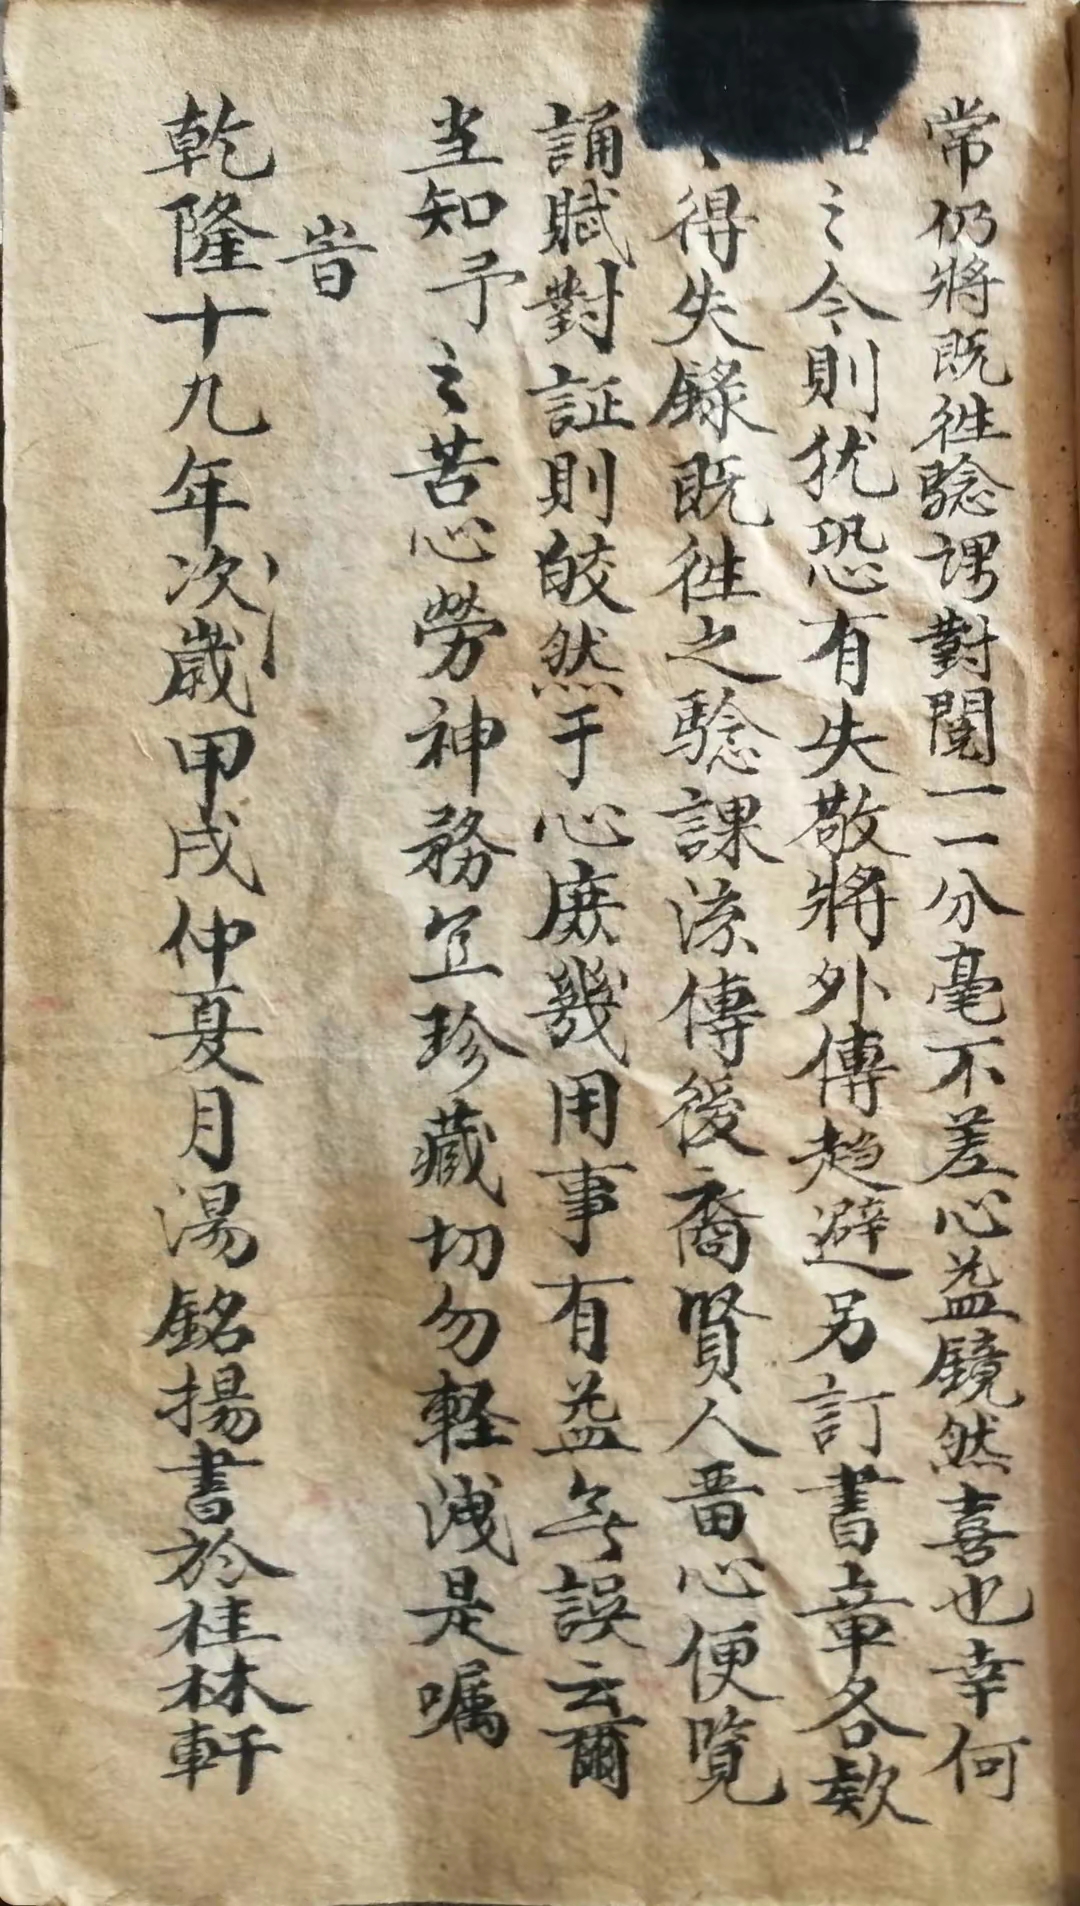 常仍將既徃騐課對閱一一分毫不差心益鏡然喜也幸何
之令則犹恐有失敬將外傳趋避另訂書章各欵
得失錄既徃之騐課流傳後裔賢人畱心便覽
誦賦對証則皎然于心庻幾用事有益無誤云爾
当知予之苦心勞神務宜珍藏切勿輕洩是嘱
旹
乾隆十九年次歲甲戌仲夏月湯銘揚書於桂林軒